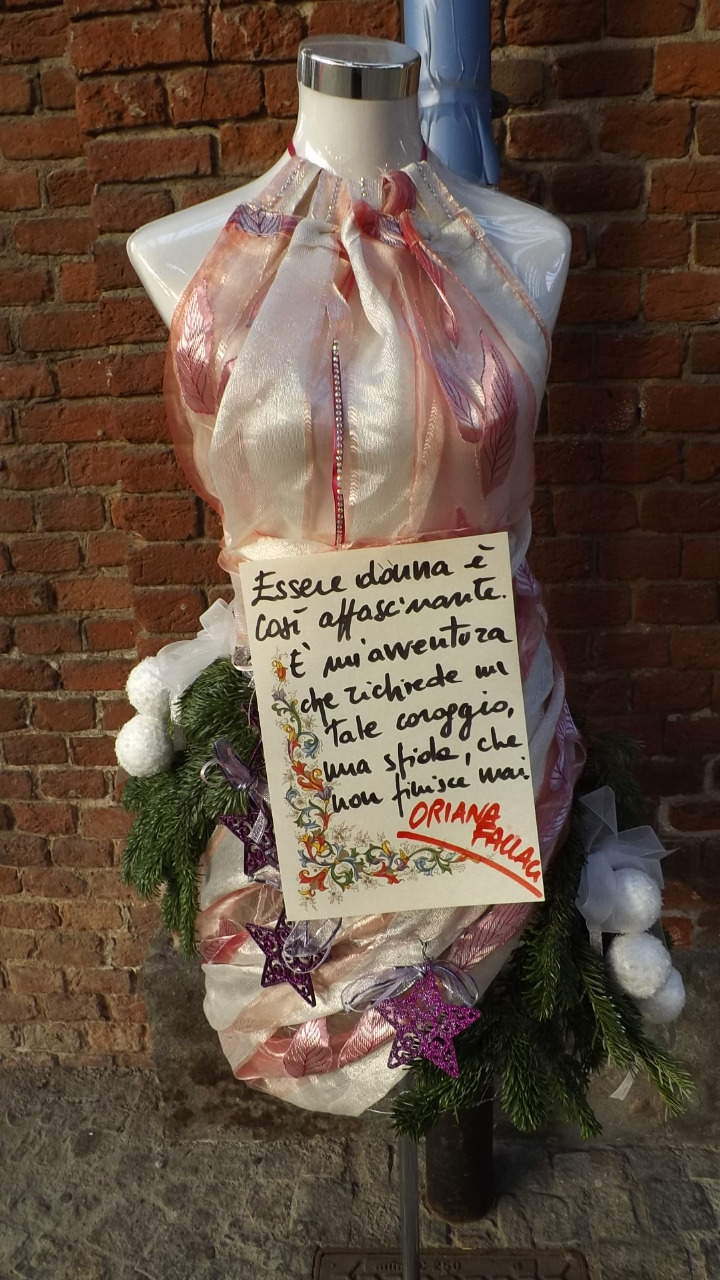 Essere donna è
così affascinante.
È un'avventura
che richiede un
tale coraggio,
una sfida, che
non finisce mai
ORIANA
FALLACI